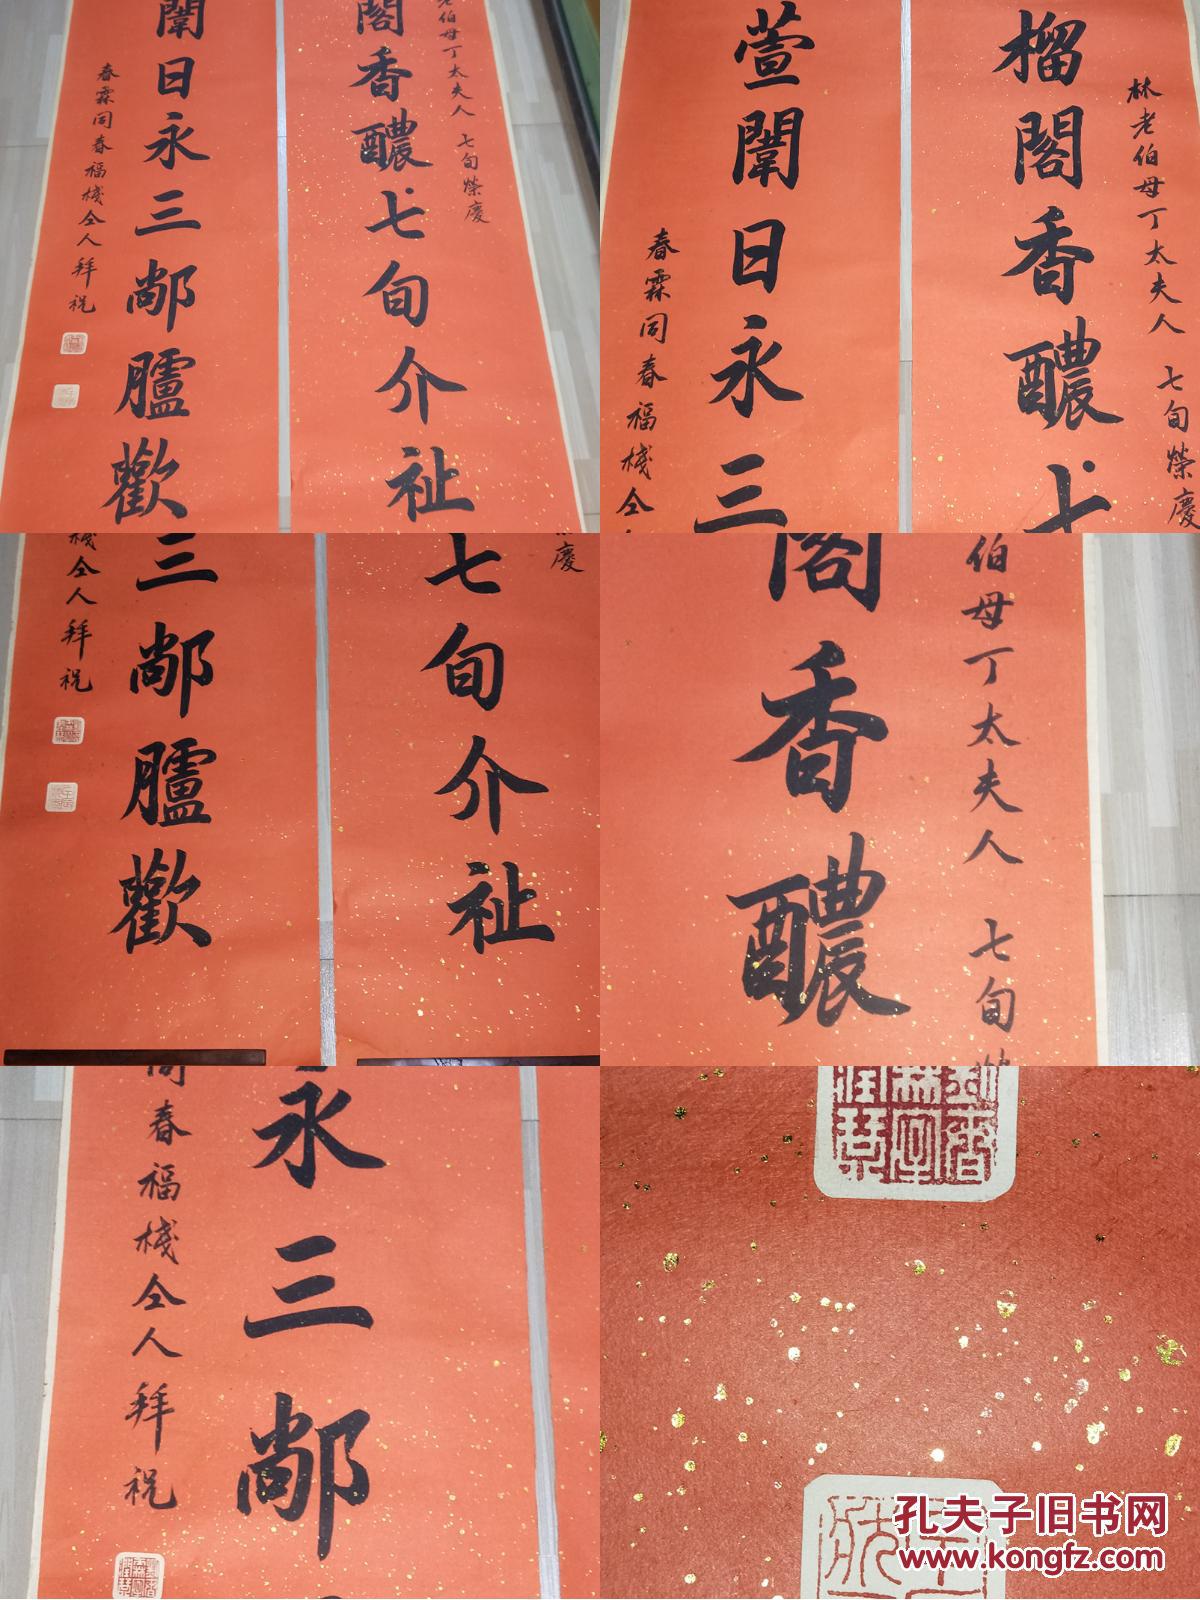 老伯母丁太夫人 七旬榮慶
閣香醲七旬介祉
闈日永三鄗臚歡
春霖同春福棧仝人拜祝
林老伯母丁太夫人 七旬榮慶
榴閣香醲七
萱闈日永三
春霖同春福棧仝
慶
七旬介祉
三鄗臚歡
棧仝人拜祝
伯母丁太夫人 七旬
閣香醲
永三鄗
同春福棧仝人拜祝
孔夫子旧书网
www.kongfz.com